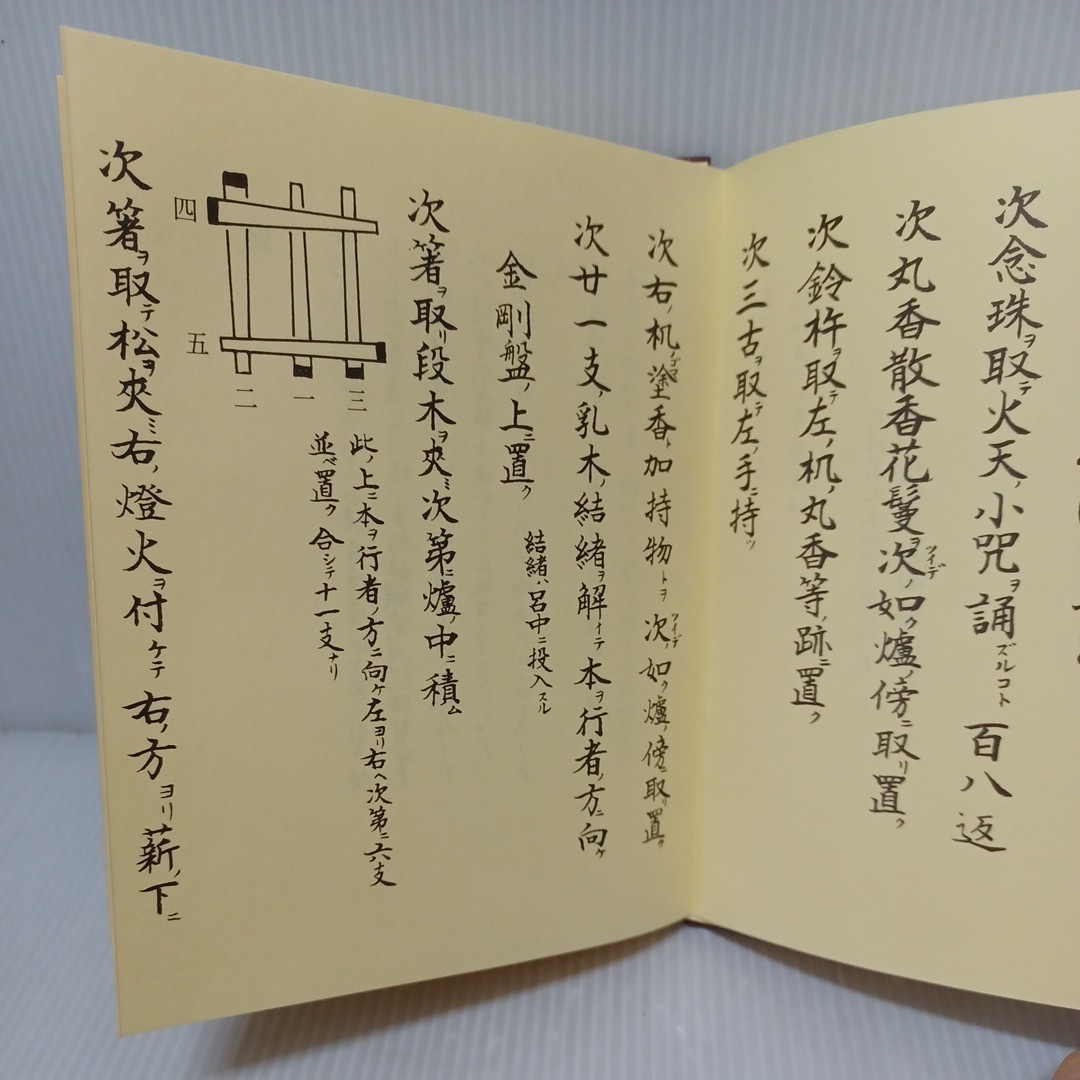 次念珠ヲ取テ火天ノ小咒ヲ誦ズルコト百八返
次丸香散香花鬘ヲ次ツイデノ如ク爐ノ傍ニ取リ置ク
次鈴杵ヲ取テ左ノ机ノ丸香等ノ跡ニ置ク
次三古ヲ取テ左ノ手ニ持ツ
次右ノ机ノ塗香ト加持物トヲ次ツイデノ如ク爐ノ傍ニ取リ置ク
次廿一支ノ乳木ノ結緒ヲ解イテ本ヲ行者ノ方ニ向ケ
金剛盤ノ上ニ置ク
結緒ハ呂中ニ投入スル
次箸ヲ取リ段木ヲ夾ミ次第ニ爐ノ中ニ積ム
四
五
二 一 三
此ノ上ニ本ヲ行者ノ方ニ向ケ左ヨリ右ヘ次第ニ六支
並ベ置ク 合シテ十一支ナリ
次箸ヲ取テ松ヲ夾ミ右ノ燈火ヲ付ケテ右ノ方ヨリ薪ノ下ニ